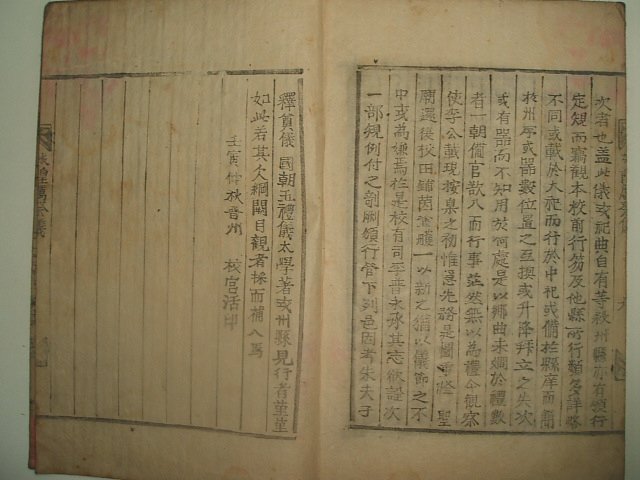 次者也盖此儀或記曲自有等殺州縣亦有頒行
定規而窃觀本校前行笏及他縣所行類多詳略
不同或載於大旅而行於中祀或備於縣庠而簡
於州序或器數位置之互換或升降拜立之失次
或有器而不知用於何處是以鄕曲未嫺於禮數
者一朝備官歆入而行事茫然無以為禮今觀察
使李公載現按臬之初惟急先務是圖重修聖
廟還後校田鋪茵簠簋一以新之猶以儀節之不
中或為嫌焉於是校有司乎晋永承其志欲證次
一部規例付之剞劂頒行管下列邑因考朱夫子
釋奠儀國朝五禮儀太學著或州縣見行者菫菫
如此若其欠綱闕目觀者採而補入焉
壬寅仲秋晋州校宮活印